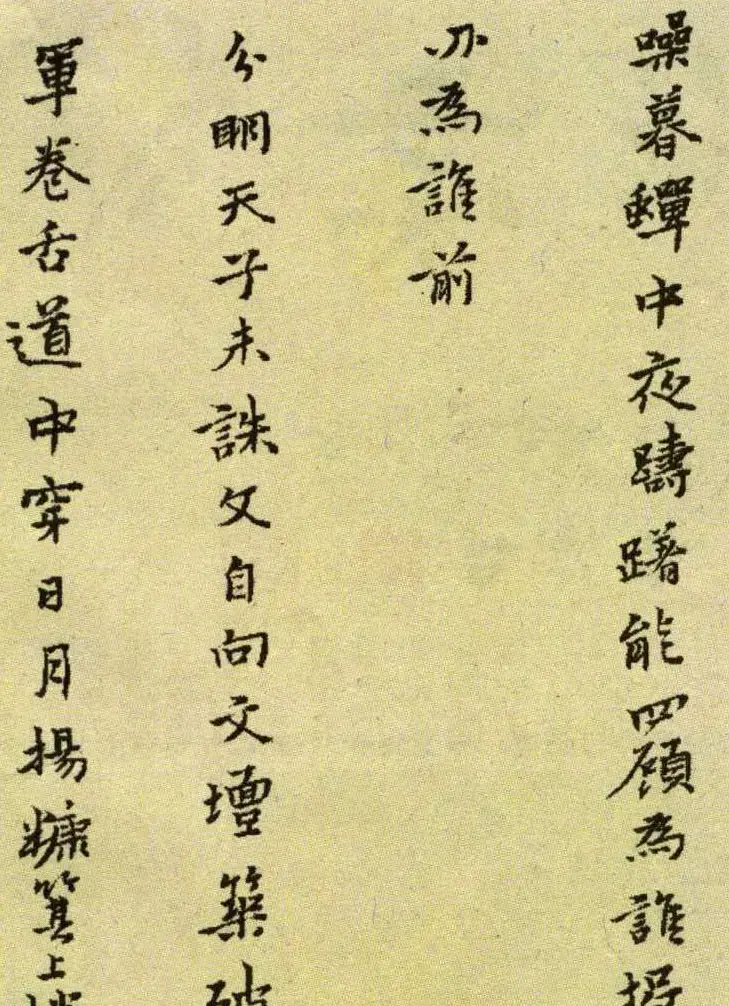 噪暮蟬中夜躊躇能四顧為誰
為誰前
分眀天子未誅文自向文壇築破
軍卷舌道中穿日月揚糠箕上